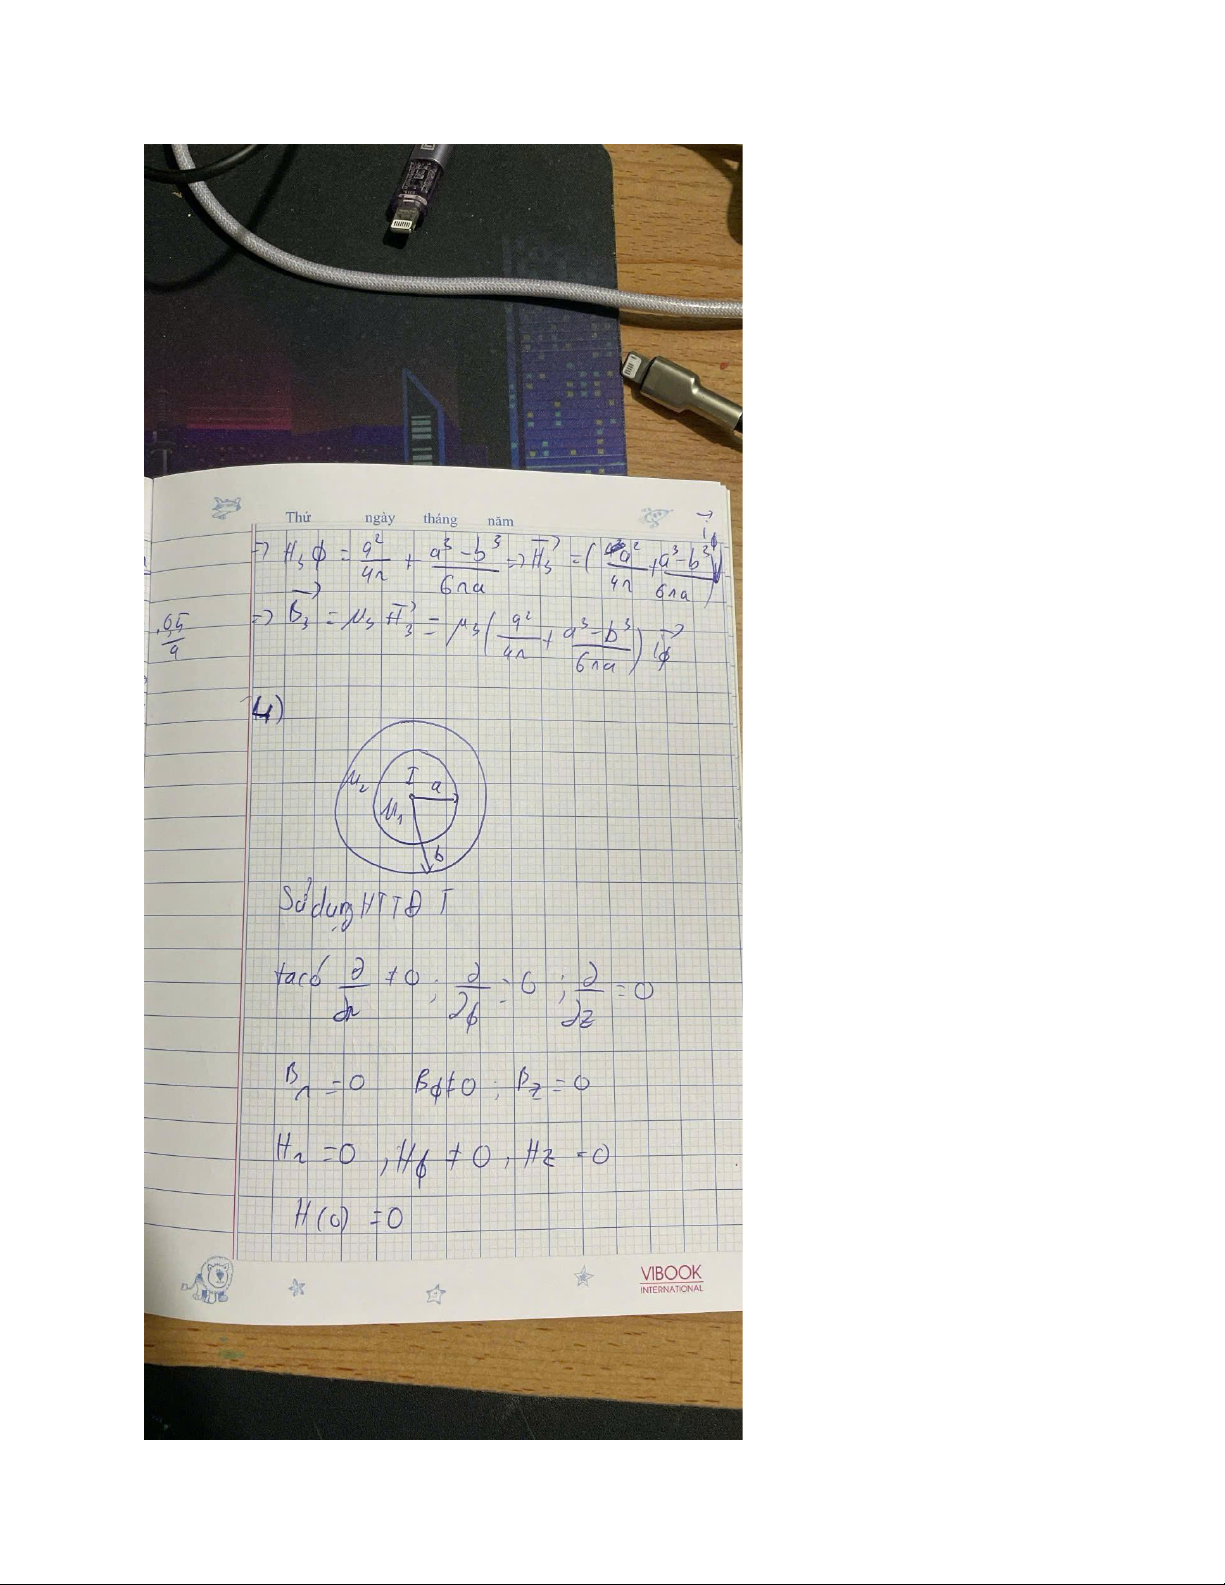 Thứ ngày tháng năm
=> H₃φ = a²/4r + (a³-b³)/6ra => H₃→ = (a²/4r + (a³-b³)/6ra) i→φ
=> B₃→ = μ₃ H₃→ = μ₃ (a²/4r + (a³-b³)/6ra) i→φ
4)
I
a
μ₂
μ₁
b
Sử dụng HTTĐ T
ta có ∂/∂r ≠ 0 ; ∂/∂φ = 0 ; ∂/∂z = 0
Br = 0 Bφ ≠ 0 ; Bz = 0
Hr = 0 , Hφ ≠ 0 , Hz = 0
H(0) = 0
VIBOOK
INTERNATIONAL